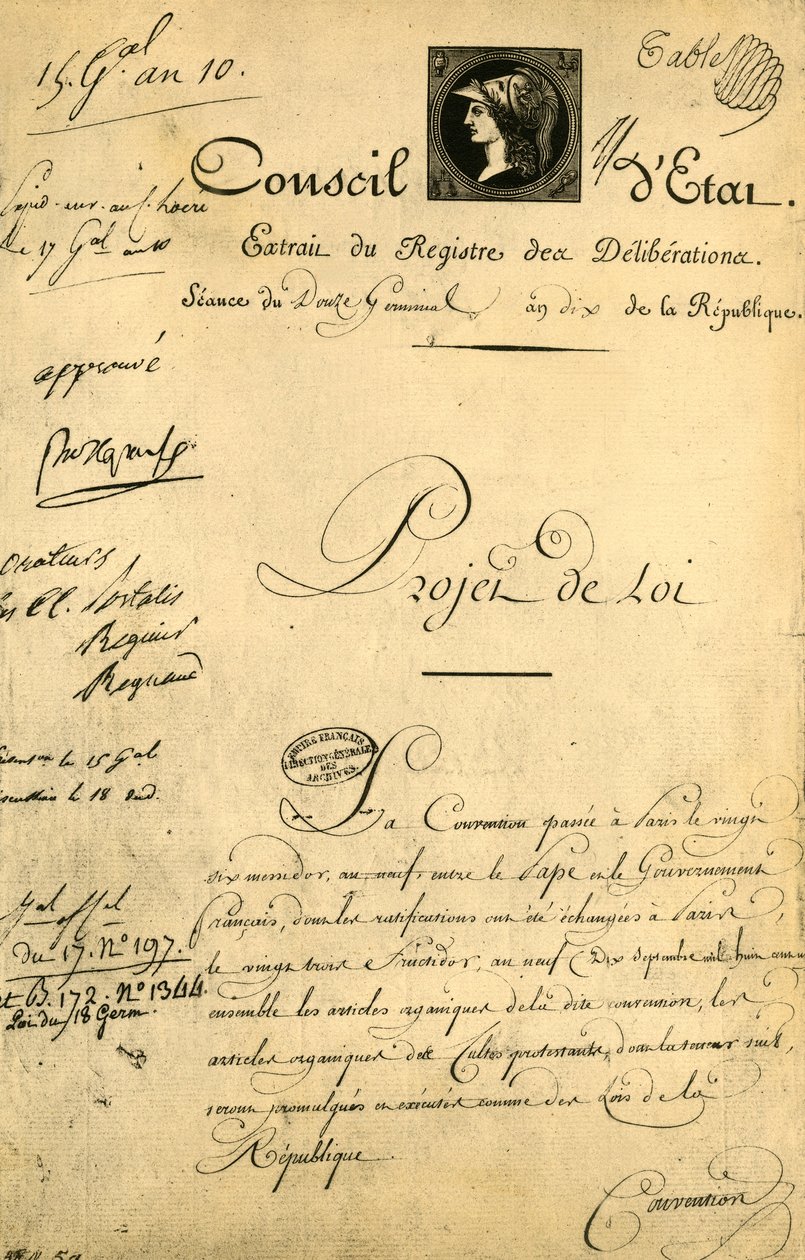 15. G.al an 10.
Table
Conseil d'Etat.
le 17 Gal an 10
Extrait du Registre des Délibérations.
Séance du Douze Germinal an dix de la République.
approuvé
Projet de Loi
orateurs
les CC. Portalis
Regnier
Regnaud
EMPIRE FRANÇAIS
DIRECTION GÉNÉRALE
DES
ARCHIVES.
le 15 Gal
discussion le 18 dud.
La Convention passée à Paris le vingt
six messidor, an neuf, entre le Pape et le Gouvernement
Français, dont les ratifications ont été échangées à Paris,
le vingt trois Fructidor, an neuf (Dix Septembre mil huit cent un
ensemble les articles organiques de la dite convention, les
articles organiques des Cultes protestants, dont la teneur suit,
seront promulgués et exécutés comme des Lois de la
République.
Jal offel
Du 17. No 197.
et B. 172. No 1344.
Loi du 18 Germ.
Convention